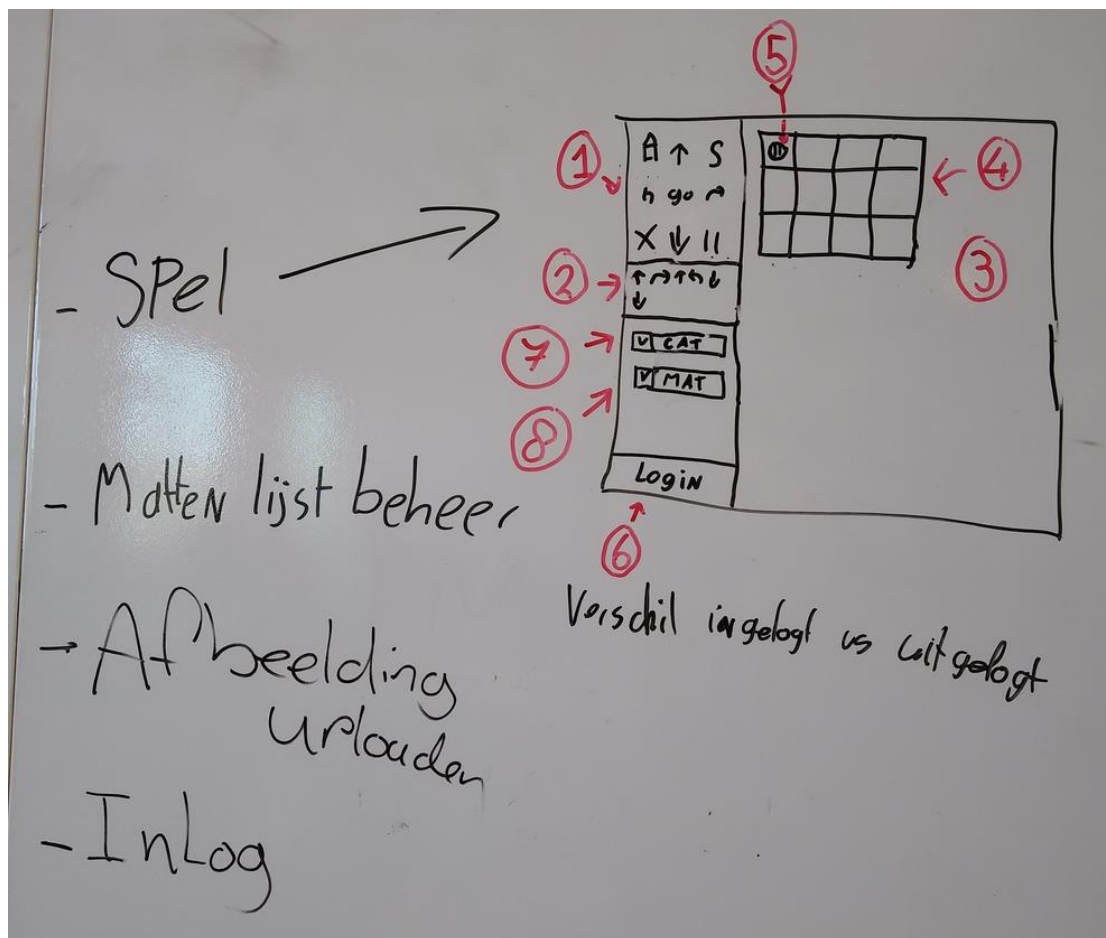 - Spel
- Matten lijst beheer
- Afbeelding
uploaden
- InLog
5
1
↑ S
go
X ↓ ||
2
7
CAT
8
MAT
Login
6
4
3
Verschil ingelogt vs uitgelogt